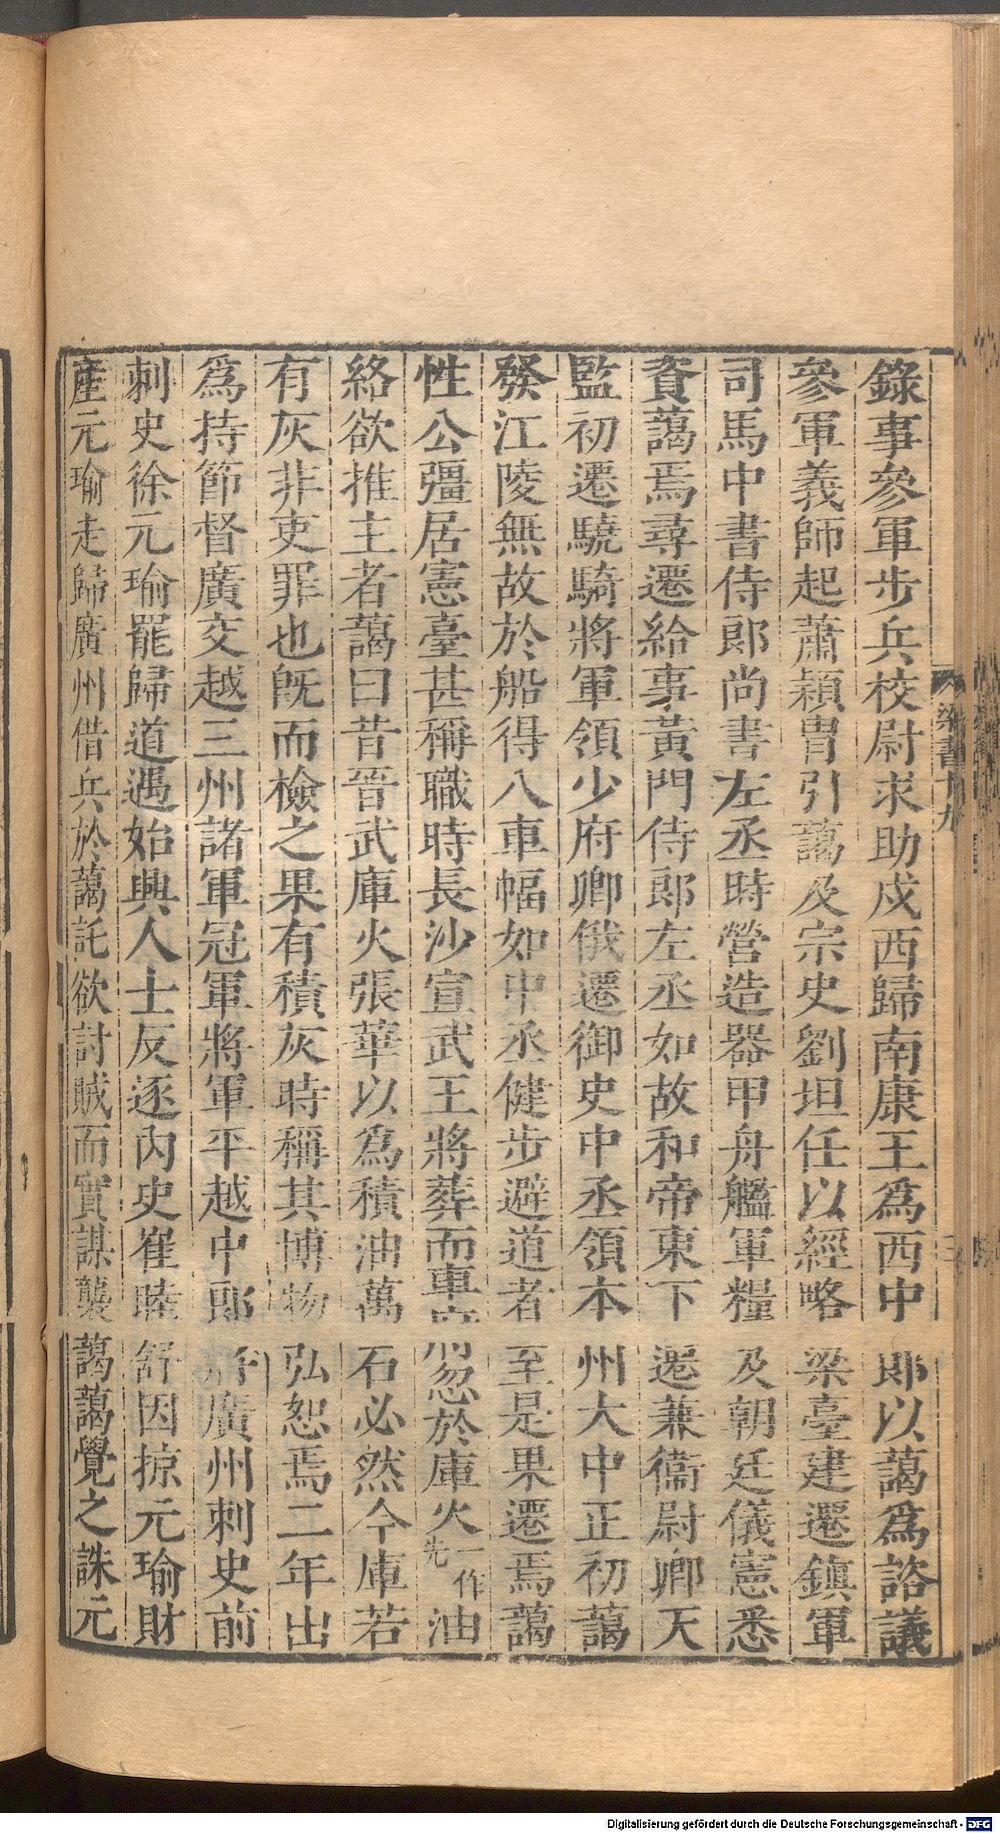 錄事參軍步兵校尉求助戍西歸南康王爲西中郎以藹爲諮議
參軍義師起蕭穎冑引藹及宗史劉坦任以經略梁臺建遷鎮軍
司馬中書侍郎尚書左丞時營造器甲舟艦軍糧及朝廷儀憲悉
資藹焉尋遷給事黃門侍郎左丞如故和帝東下遷兼衞尉卿天
監初遷驍騎將軍領少府卿俄遷御史中丞領本州大中正初藹
發江陵無故於船得八車幅如中丞健步避道者至是果遷焉藹
性公彊居憲臺甚稱職時長沙宣武王將葬而車府忽於庫火一作先油
絡欲推主者藹曰昔晉武庫火張華以爲積油萬石必然今庫若
有灰非吏罪也旣而檢之果有積灰時稱其博物弘恕焉二年出
爲持節督廣交越三州諸軍冠軍將軍平越中郎將廣州刺史前
刺史徐元瑜罷歸道遇始興人士反逐內史崔睦舒因掠元瑜財
產元瑜走歸廣州借兵於藹託欲討賊而實謀襲藹藹覺之誅元
梁書十九
三
Digitalisierung gefördert durch die Deutsche Forschungsgemeinschaft - DFG